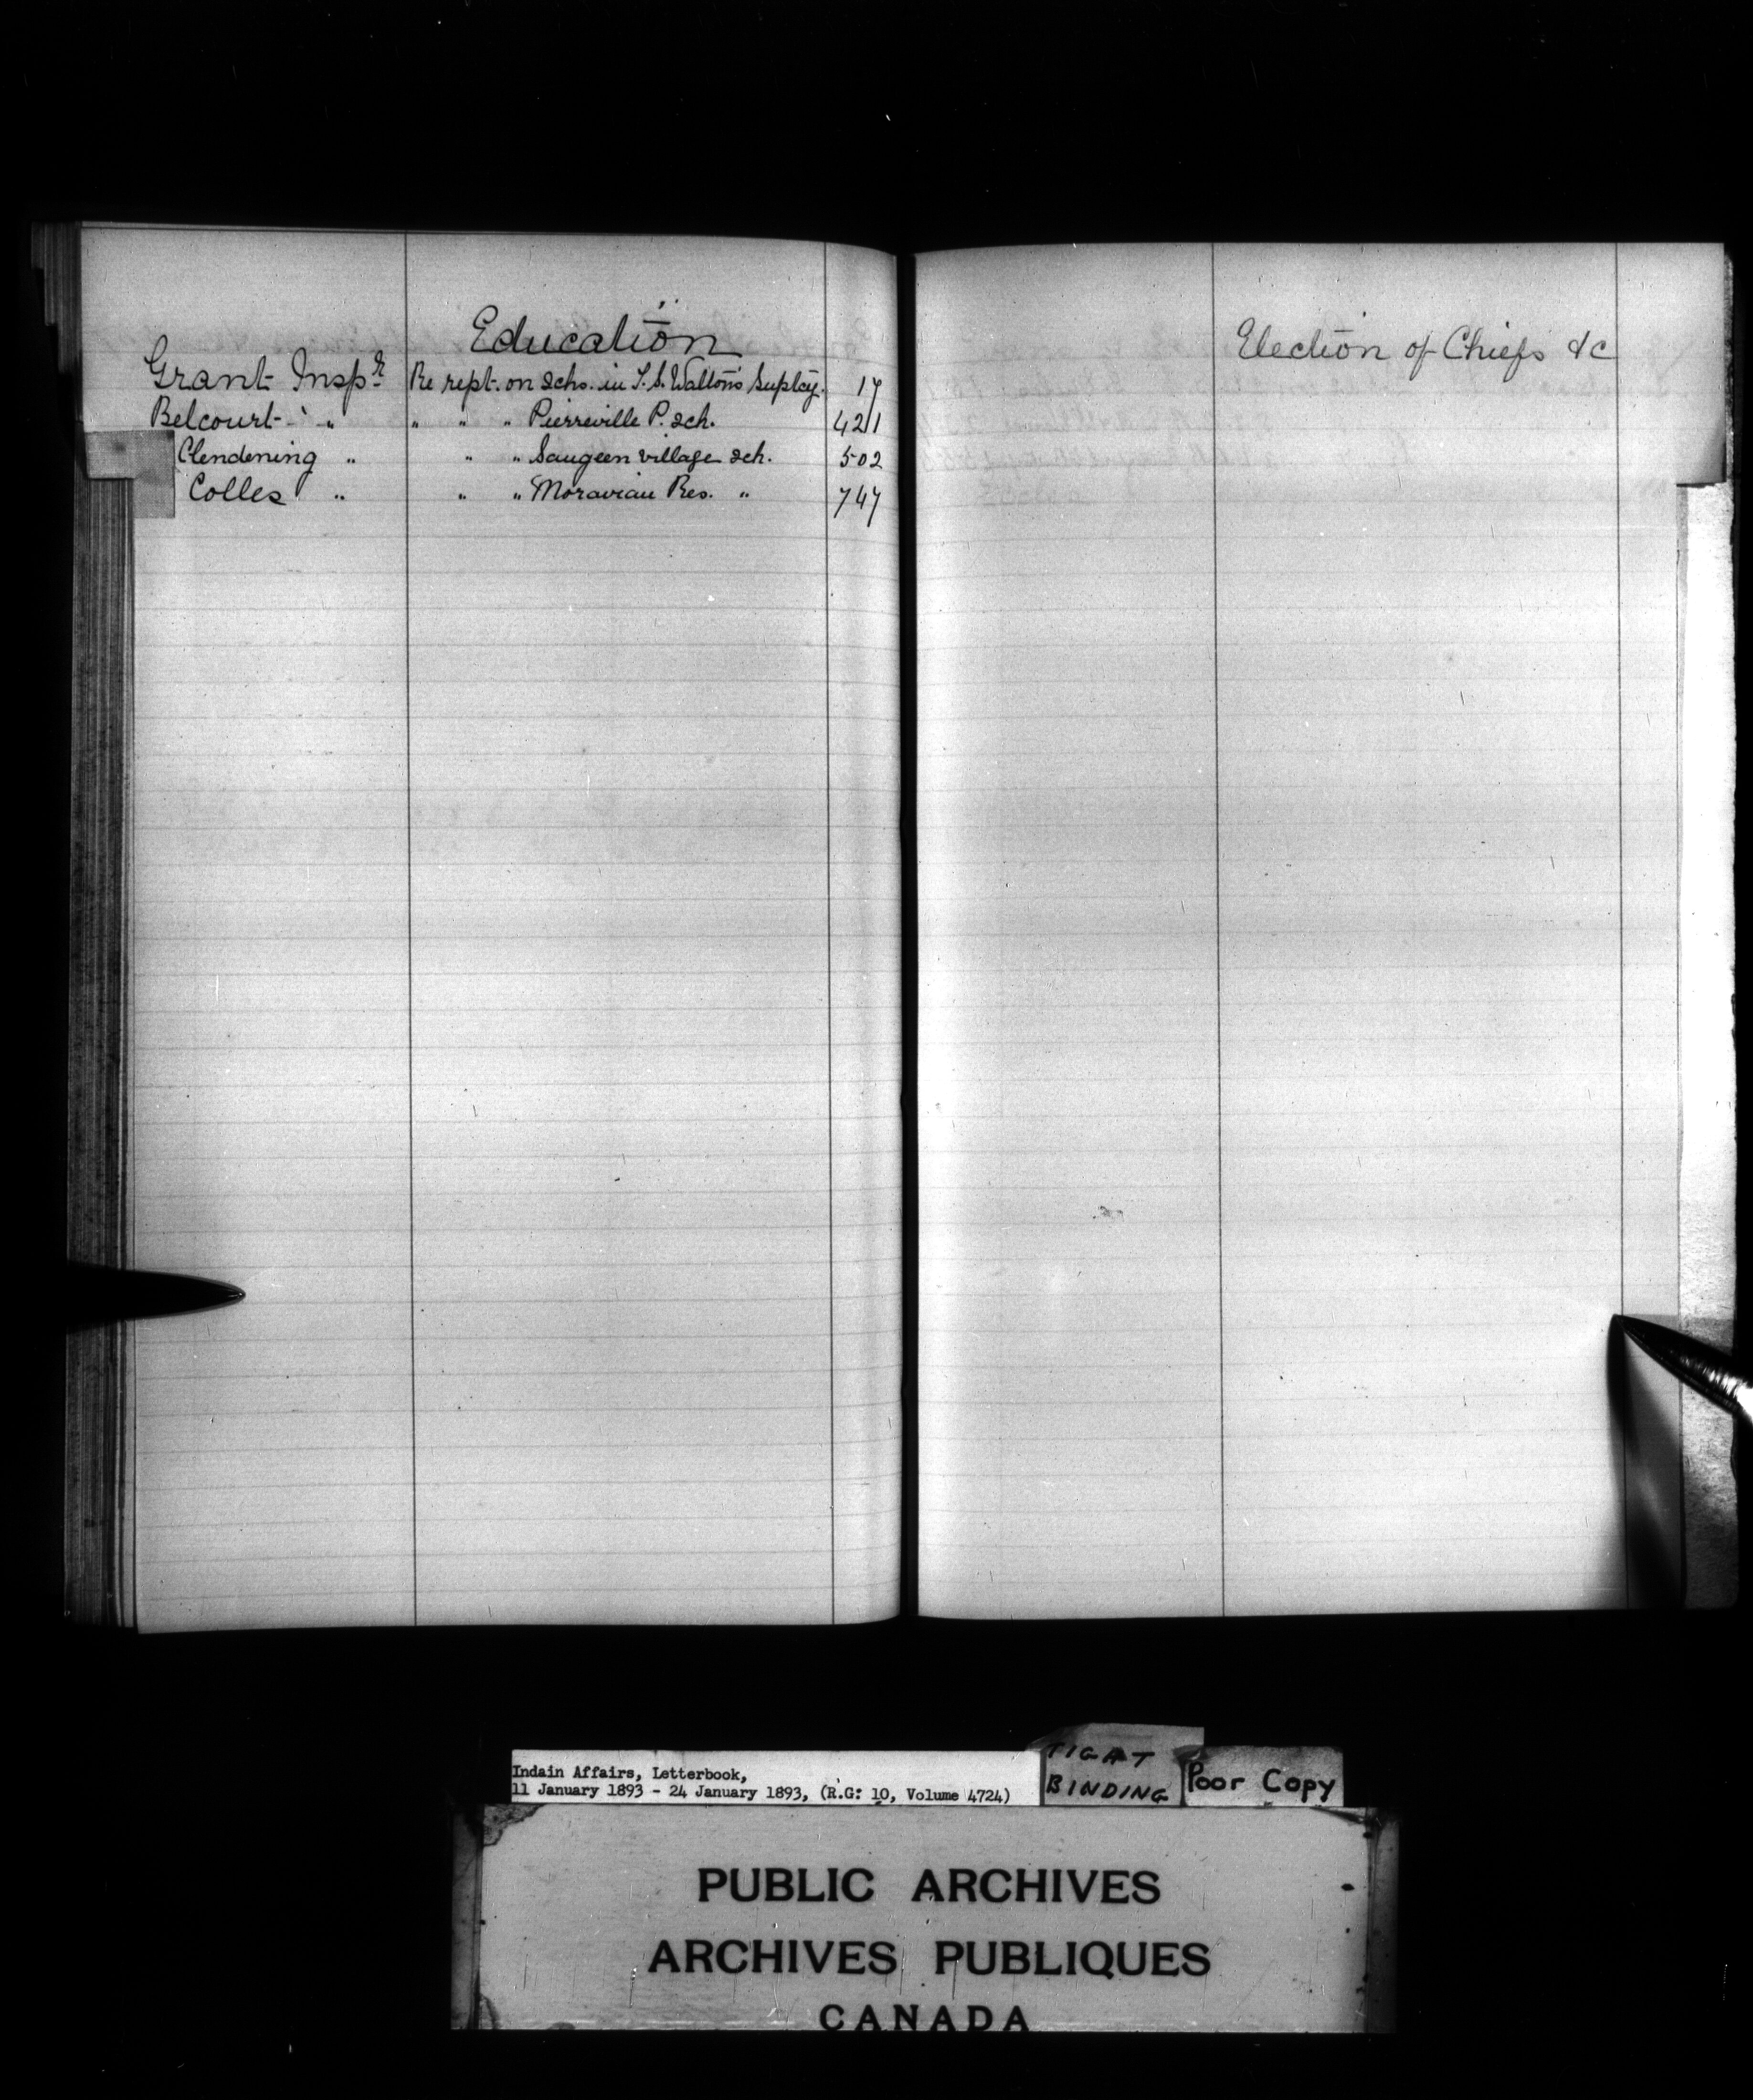 Education
Grant Inspr Re rept. on schs. in T. S. Walton's Suptcy. 17
Belcourt " " " " Pierreville P. sch. 421
Clendening " " " Saugeen village sch. 502
Colles " " " Moravian Res. " 747
Election of Chiefs &c
Indain Affairs, Letterbook,
11 January 1893 - 24 January 1893, (R.G: 10, Volume 4724)
TIGHT
BINDING
Poor Copy
PUBLIC ARCHIVES
ARCHIVES PUBLIQUES
CANADA